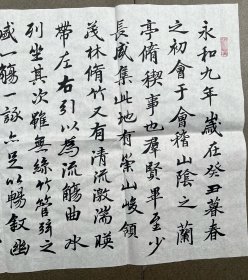 永和九年歲在癸丑暮春
之初會于會稽山陰之蘭
亭脩稧事也羣賢畢至少
長咸集此地有崇山峻領
茂林脩竹又有清流激湍暎
帶左右引以為流觴曲水
列坐其次雖無絲竹管弦之
盛一觴一詠亦足以暢敘幽